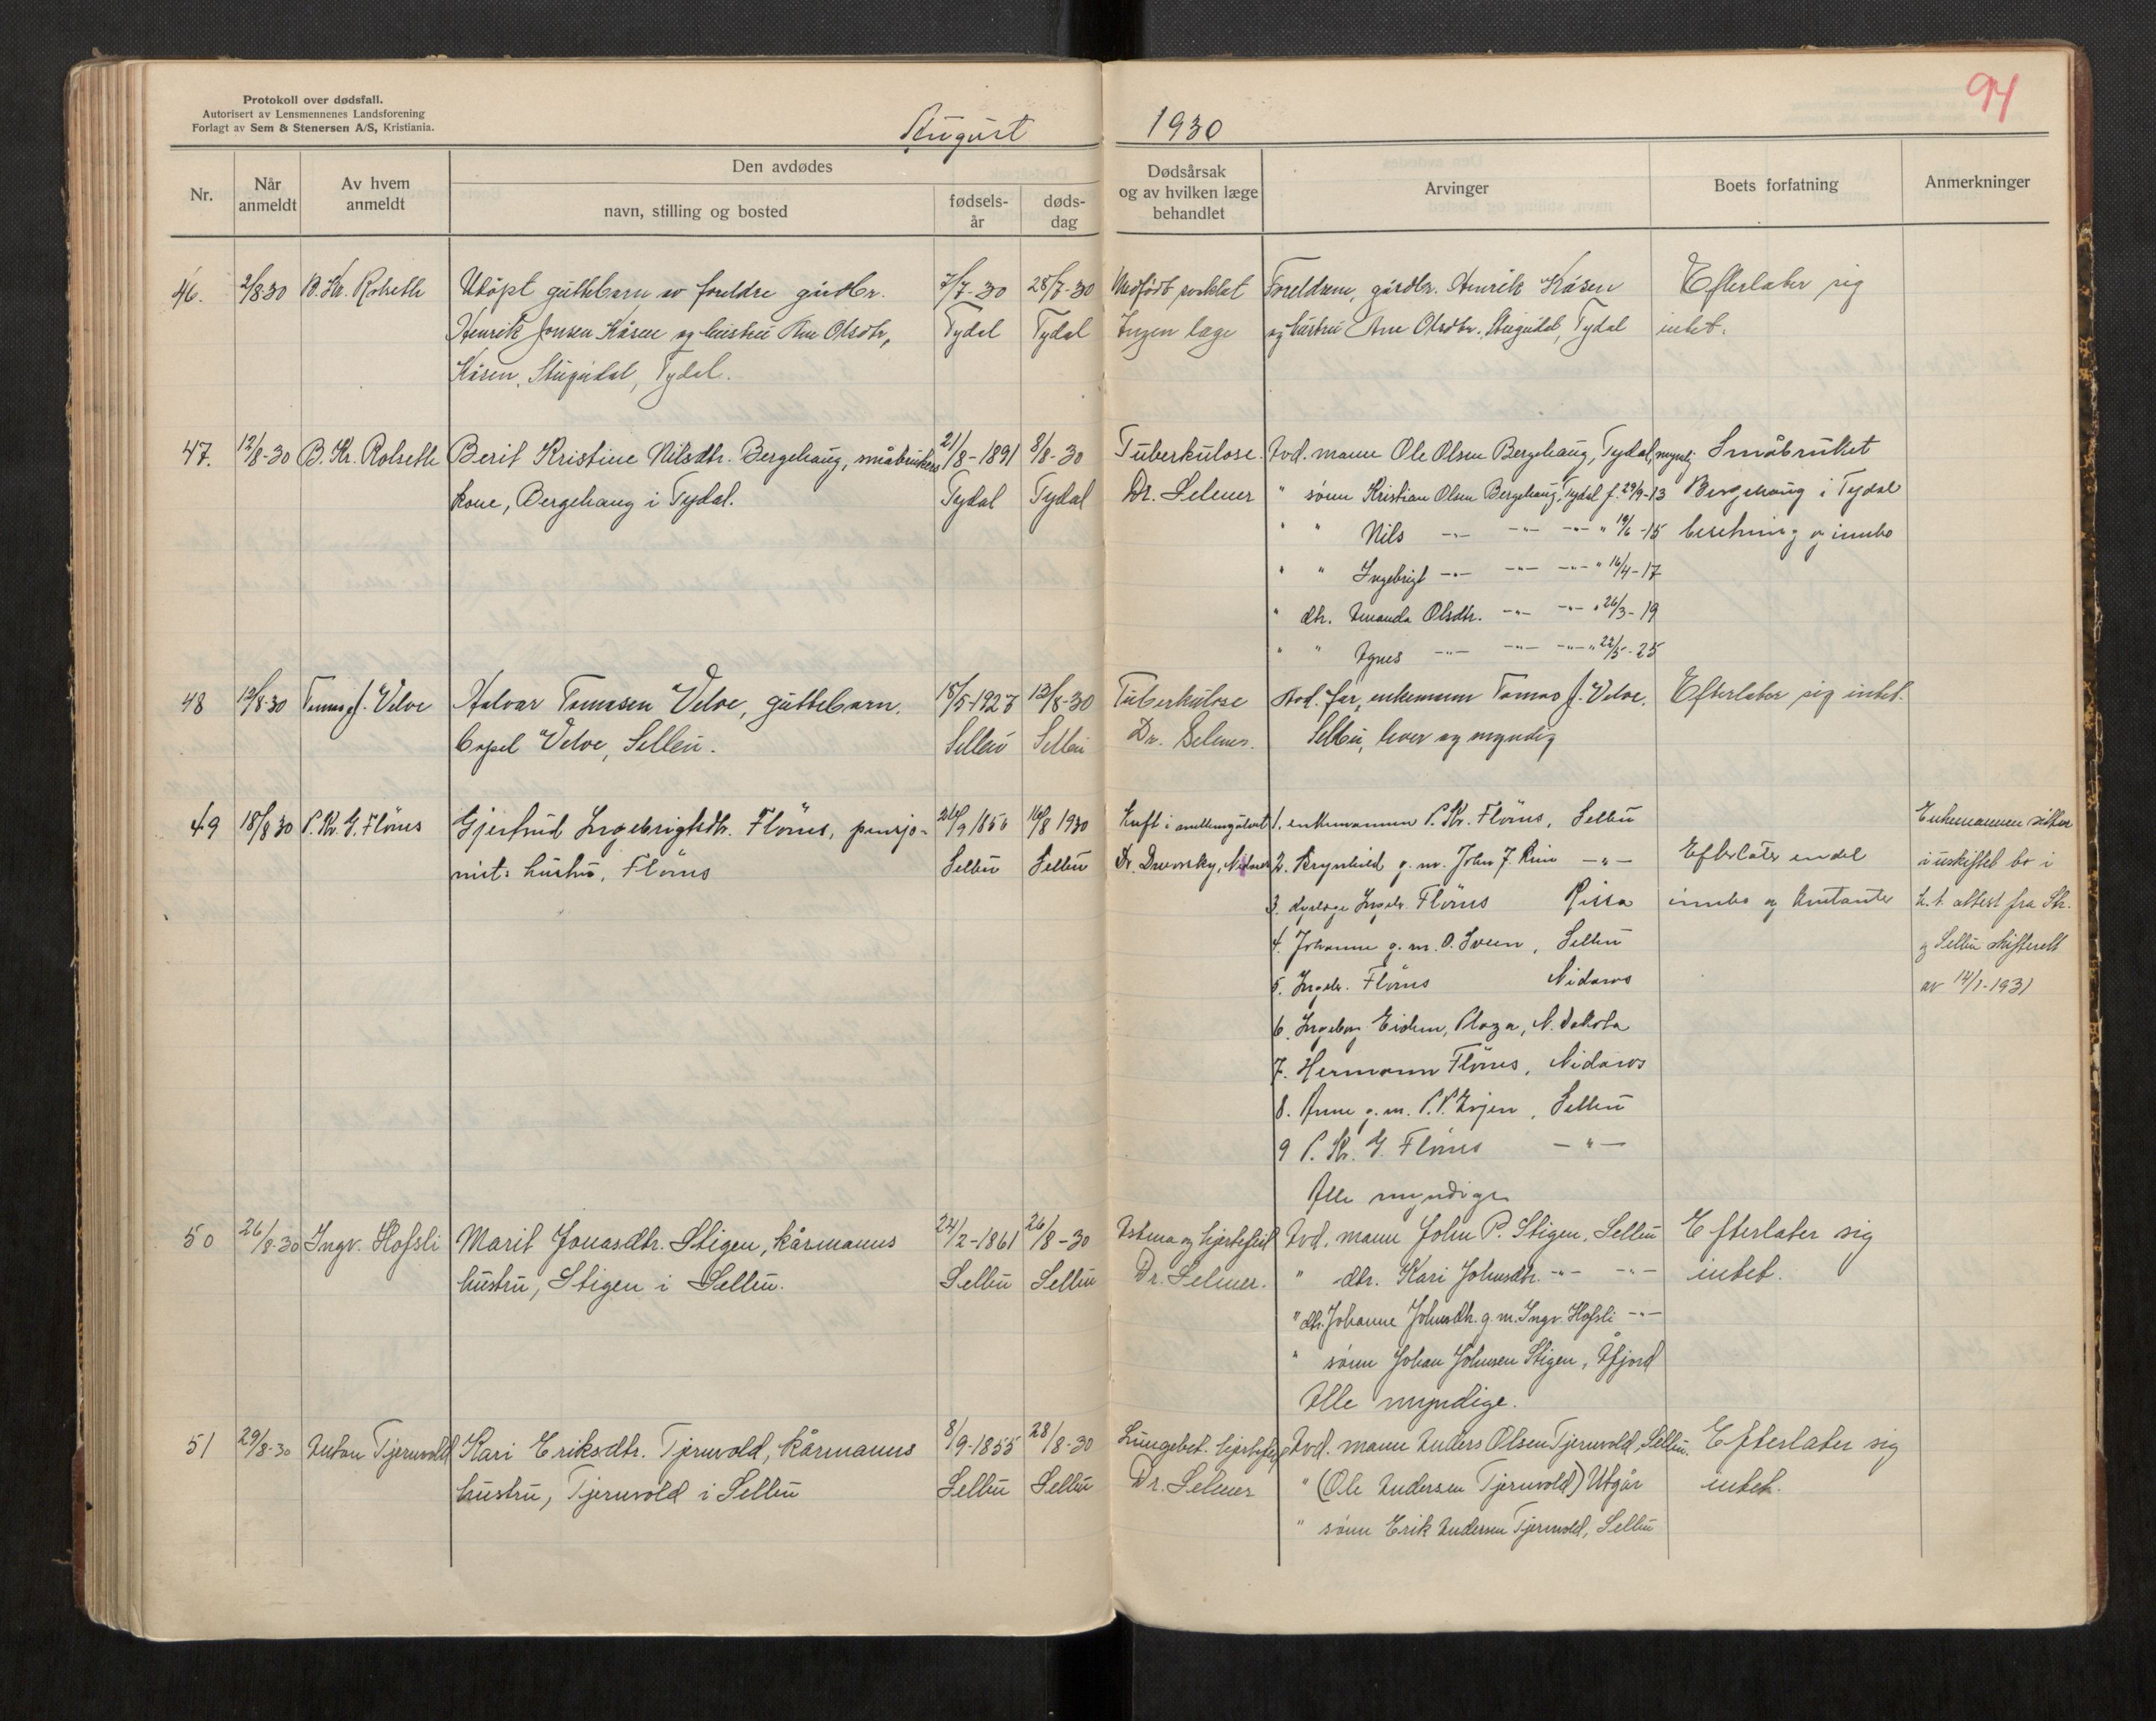 94
Protokoll over dødsfall.
Autorisert av Lensmennenes Landsforening
Forlagt av Sem & Stenersen A/S, Kristiania.
August 1930
Nr.
Når anmeldt
Av hvem anmeldt
Den avdødes
navn, stilling og bosted
fødsels-år
døds-dag
Dødsårsak og av hvilken læge behandlet
Arvinger
Boets forfatning
Anmerkninger
46. 2/8 30 B. Kr. Rolseth Udøpt guttebarn av foreldre gårdbr. 7/7-30 28/7-30 Medfødt svaklet Foreldrene, gårdbr. Henrik Kåsen Efterlater sig
Henrik Jonsen Kåsen og hustru Ane Olsdtr, Tydal Tydal Ingen læge og hustru Ane Olsdtr. Stugudal, Tydal intet.
Kåsen, Stugudal, Tydal.
47. 12/8-30 B. Kr. Rolseth Berit Kristine Nilsdtr. Bergehaug, småbrukers 21/8-1891 8/8-30 Tuberkulose. Avd. mann Ole Olsen Bergehaug, Tydal, myndig Småbruket
kone, Bergehaug i Tydal. Tydal Tydal Dr. Selmer " sønn Kristian Olsen Bergehaug, Tydal f. 29/9-13 Bergehaug i Tydal
" " Nils -"- -"- -"- " 19/6-15 besetning og innbo
" " Ingebrigt -"- -"- -"- " 16/4-17
" dtr. Amanda Olsdtr. -"- -"- " 26/3-19
" " Agnes -"- -"- -"- " 22/5-25
48 12/8-30 Tomas J. Velve Halvar Tomasen Velve, guttebarn. 18/5-1927 12/8-30 Tuberkulose Avd. far, enkemann Tomas J. Velve. Efterlater sig intet.
Velve, Selbu. Selbu Selbu Dr. Selmer. Selbu, lever og myndig
49 18/8 30 P. Kr. G. Flönes Gjertrud Ingebrigtsdtr. Flönes, pensjo- 24/9 1856 16/8 1930 1. enkemannen P. Kr. Flönes, Selbu Enkemannen sitter
nist: hustru, Flönes Selbu Selbu Dr. 2. Brynhild g. m. John J. -"- Efterlater endel i uskiftet bo i
3. Ingebr. Flönes Rissa innbo og kontanter h. t. attest fra Str.
4. Johanne g. m. O. Sveen, Selbu og Selbu skifterett
5. Ingebr. Flönes Nidaros av 14/1-1931
6. Ingeborg Eidem, Plaza, N. Dakota
7. Hermann Flönes, Nidaros
8. Anne g. m. P. P. Evjen, Selbu
9 P. Kr. G. Flönes -"-
Alle myndige
50 26/8-30 Ingv. Hofsli Marit Jonasdtr. Stigen, kårmanns 24/2-1861 26/8-30 Astma og hjertefeil Avd. mann John P. Stigen, Selbu Efterlater sig
hustru, Stigen i Selbu. Selbu Selbu Dr. Selmer. " dtr. Kari Johnsdtr. -"- -"- intet.
" dtr. Johanne Johnsdtr. g. m. Ingv. Hofsli -"-
" sønn Johan Johnsen Stigen, Åfjord
Alle myndige.
51 29/8-30 Anton Tjernvold Kari Eriksdtr. Tjernvold, kårmanns 8/9-1855 28/8-30 Lungebet. hjertefeil Avd. mann Anders Olsen Tjernvold, Selbu. Efterlater sig
hustru, Tjernvold i Selbu Selbu Selbu Dr. Selmer " (Ole Andersen Tjernvold) Utgår intet.
" sønn Erik Andersen Tjernvold, Selbu